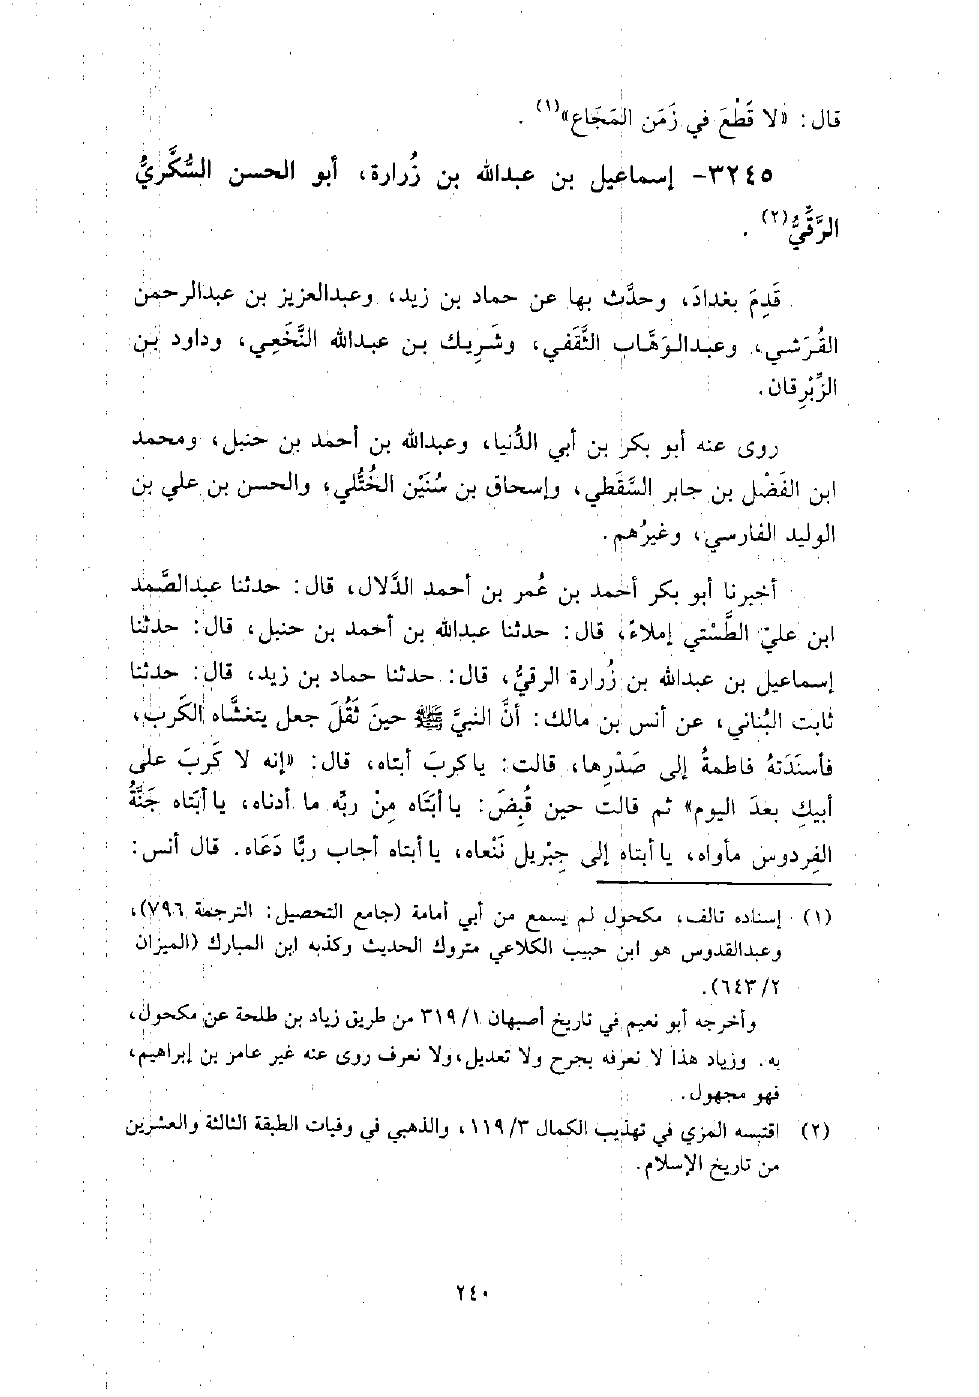 قال: «لا قَطْعَ في زَمَن المَجَاع»(١) .
٣٢٤٥- إسماعيل بن عبدالله بن زُرارة، أبو الحسن السُّكَّريُّ
الرَّقِّيُّ(٢) .
قَدِمَ بغدادَ، وحدَّث بها عن حماد بن زيد، وعبدالعزيز بن عبدالرحمن
القُرَشي، وعبدالوَهَّاب الثَّقَفي، وشَرِيك بن عبدالله النَّخَعِي، وداود بن
الزِّبْرِقان.
روى عنه أبو بكر بن أبي الدُّنيا، وعبدالله بن أحمد بن حنبل، ومحمد
ابن الفَضْل بن جابر السَّقَطي، وإسحاق بن سُنَيْن الخُتُّلي، والحسن بن علي بن
الوليد الفارسي، وغيرُهم.
أخبرنا أبو بكر أحمد بن عُمر بن أحمد الدَّلال، قال: حدثنا عبدالصَّمد
ابن عليّ الطَّسْتي إملاءً، قال: حدثنا عبدالله بن أحمد بن حنبل، قال: حدثنا
إسماعيل بن عبدالله بن زُرارة الرقيُّ، قال: حدثنا حماد بن زيد، قال: حدثنا
ثابت البُناني، عن أنس بن مالك: أنَّ النبيَّ ﷺ حينَ ثَقُلَ جعل يتغشَّاه الكَرب،
فأسنَدَتهُ فاطمةُ إلى صَدْرِها، قالت: ياكربَ أبتاه، قال: «إنه لا كَربَ على
أبيكِ بعدَ اليوم» ثم قالت حين قُبِضَ: يا أبَتَاه مِنْ ربِّه ما أدناه، يا أبَتاه جَنَّةُ
الفِردوس مأواه، يا أبتاه إلى جِبْريل نَنْعاه، يا أبتاه أجاب ربًّا دَعَاه. قال أنس:
(١) إسناده تالف، مكحول لم يسمع من أبي أمامة (جامع التحصيل: الترجمة ٧٩٦)،
وعبدالقدوس هو ابن حبيب الكلاعي متروك الحديث وكذبه ابن المبارك (الميزان
٢/ ٦٤٣).
وأخرجه أبو نعيم في تاريخ أصبهان ١/ ٣١٩ من طريق زياد بن طلحة عن مكحول،
به. وزياد هذا لا نعرفه بجرح ولا تعديل، ولا نعرف روى عنه غير عامر بن إبراهيم،
فهو مجهول.
(٢) اقتبسه المزي في تهذيب الكمال ٣/ ١١٩، والذهبي في وفيات الطبقة الثالثة والعشرين
من تاريخ الإسلام.
٢٤٠